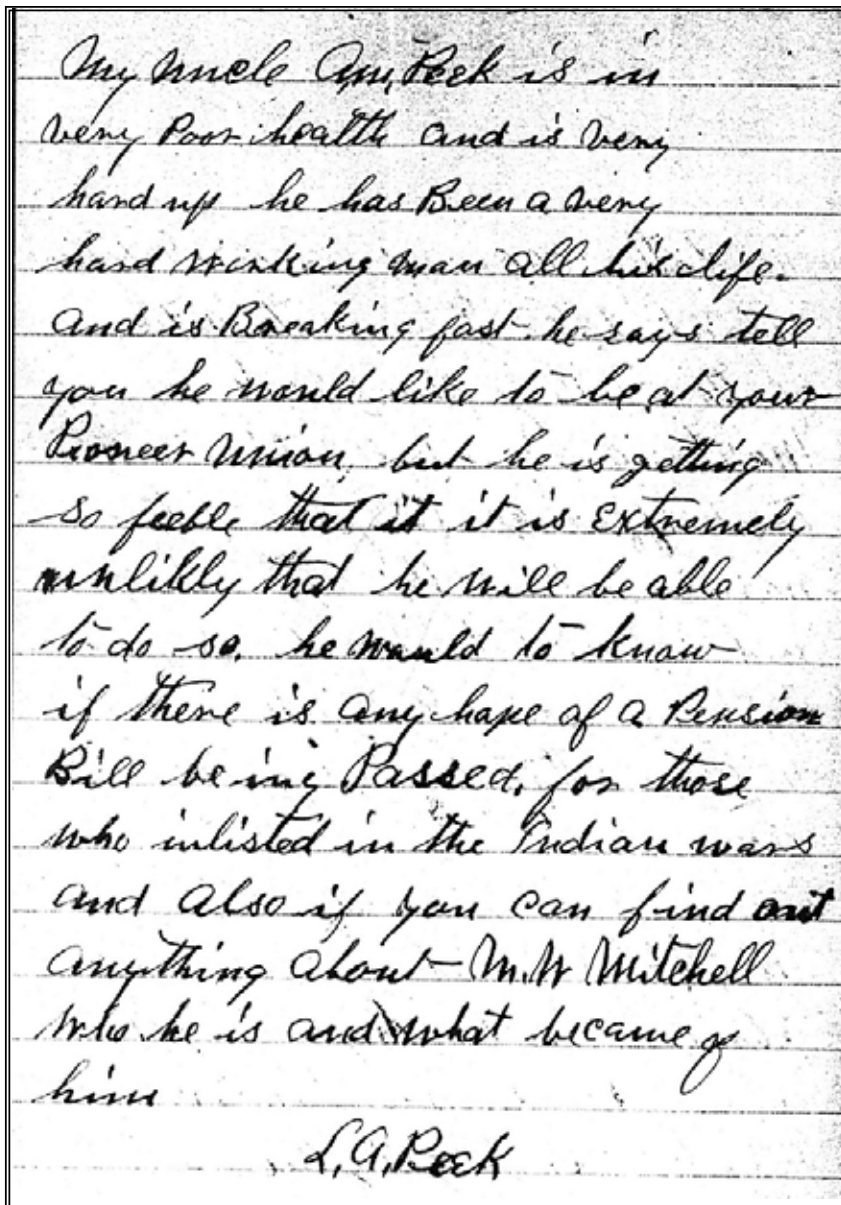 My Uncle A.M. Peek is in
very Poor health and is very
hard up he has Been a very
hard working man all his life.
and is Breaking fast he says tell
you he would like to be at your
Pioneer Union, but he is getting
so feeble that it it is Extremely
unlikly that he will be able
to do so. he would to know
if there is any hope of a Pension
Bill being Passed, for those
who inlisted in the Indian wars
and also if you can find out
anything about M.W Mitchell
who he is and what became of
him
L.A. Peek